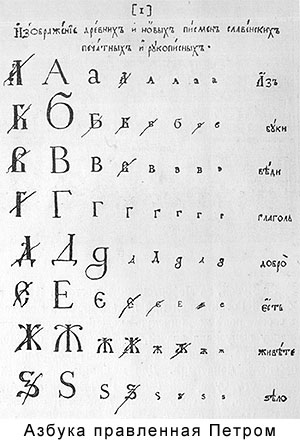 [1]
Изображенїе древнихъ и новыхъ писменъ славенскихъ
печатныхъ и рукописныхъ.
А А а а а а а Азъ
Б Б Б Б Б б в буки
В В В в в в в вѣди
Г Г Г г г г г глаголь
Д Д д д д д д добро
Є Е Є є е е е єсть
Ж Ж Ж Ж Ж ж ж живѣте
Ѕ Ѕ Ѕ Ѕ ѕ ѕ ѕ ѕ ѕѣло
Азбука правленная Петром